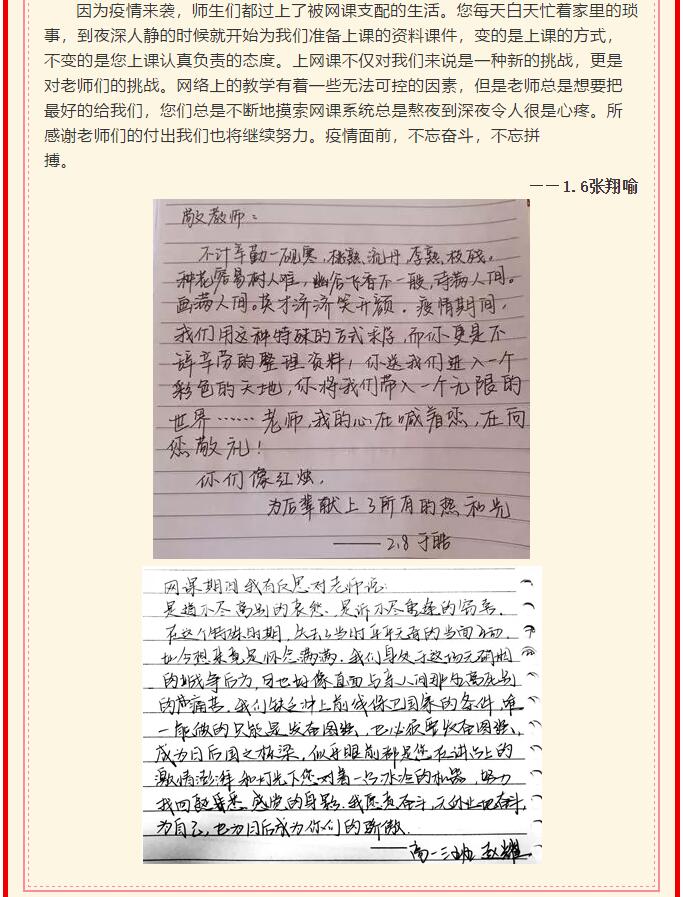 因为疫情来袭，师生们都过上了被网课支配的生活。您每天白天忙着家里的琐
事，到夜深人静的时候就开始为我们准备上课的资料课件，变的是上课的方式，
不变的是您上课认真负责的态度。上网课不仅对我们来说是一种新的挑战，更是
对老师们的挑战。网络上的教学有着一些无法可控的因素，但是老师总是想要把
最好的给我们，您们总是不断地摸索网课系统总是熬夜到深夜令人很是心疼。所
感谢老师们的付出我们也将继续努力。疫情面前，不忘奋斗，不忘拼
搏。
——1.6张翔喻
敬教师：
不计辛勤一砚寒，桃熟流丹，李熟枝残，
种花容易树人难，幽谷飞香不一般，诗满人间。
画满人间。英才济济笑开颜。疫情期间，
我们用这种特殊的方式来学，而你更是不
辞辛劳的整理资料！你送我们进入一个
彩色的天地，你将我们带入一个无限的
世界……老师，我的心在喊着您，在向
您敬礼！
你们像红烛，
为后辈献上了所有的热和光
——2.8 于皓
网课期间我有反思对老师说：
是道不尽离别的哀愁，是诉不尽重逢的
在这个特殊时期，失去了当时平平无奇的当面互动，
如今想来竟是怀念满满。我们身处于这场无硝烟
的战争后方，
的痛苦。我们缺乏冲上前线保卫国家的条件，唯
一能做的只能是发奋图强，也必须要发奋图强，
成为日后国之栋梁。似乎眼前都是您在讲台上的
激情澎湃和灯光下您对着一台冰冷的机器，努力
的身影。我愿意奋斗，
为自己，也为日后成为你们的骄傲。
——高一三 赵耀